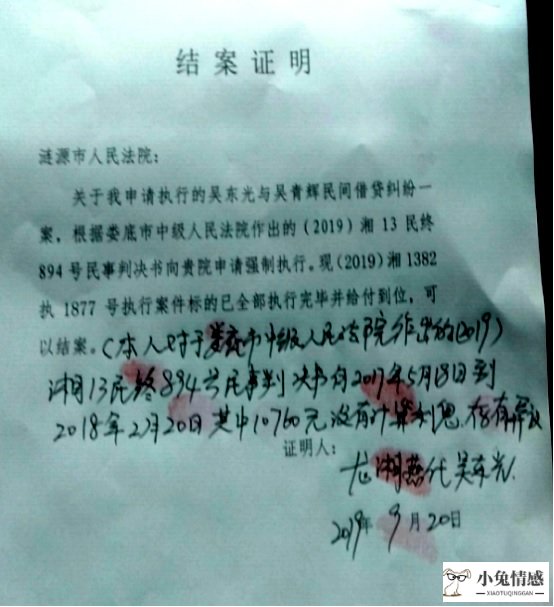 结案证明
涟源市人民法院：
关于我申请执行的吴东光与吴青辉民间借贷纠纷一
案，根据娄底市中级人民法院作出的（2019）湘13民终
894号民事判决书向贵院申请强制执行。现（2019）湘1382
执1877号执行案件标的已全部执行完毕并给付到位，可
以结案。（本人对于娄底市中级人民法院作出的（2019）
湘13民终894号民事判决书自2017年5月18日到
2018年2月20日其中10760元没有计算利息，存有异议
证明人：
龙湘燕代吴东光
2019年9月20日
小兔情感
XIAOTUQINGGAN